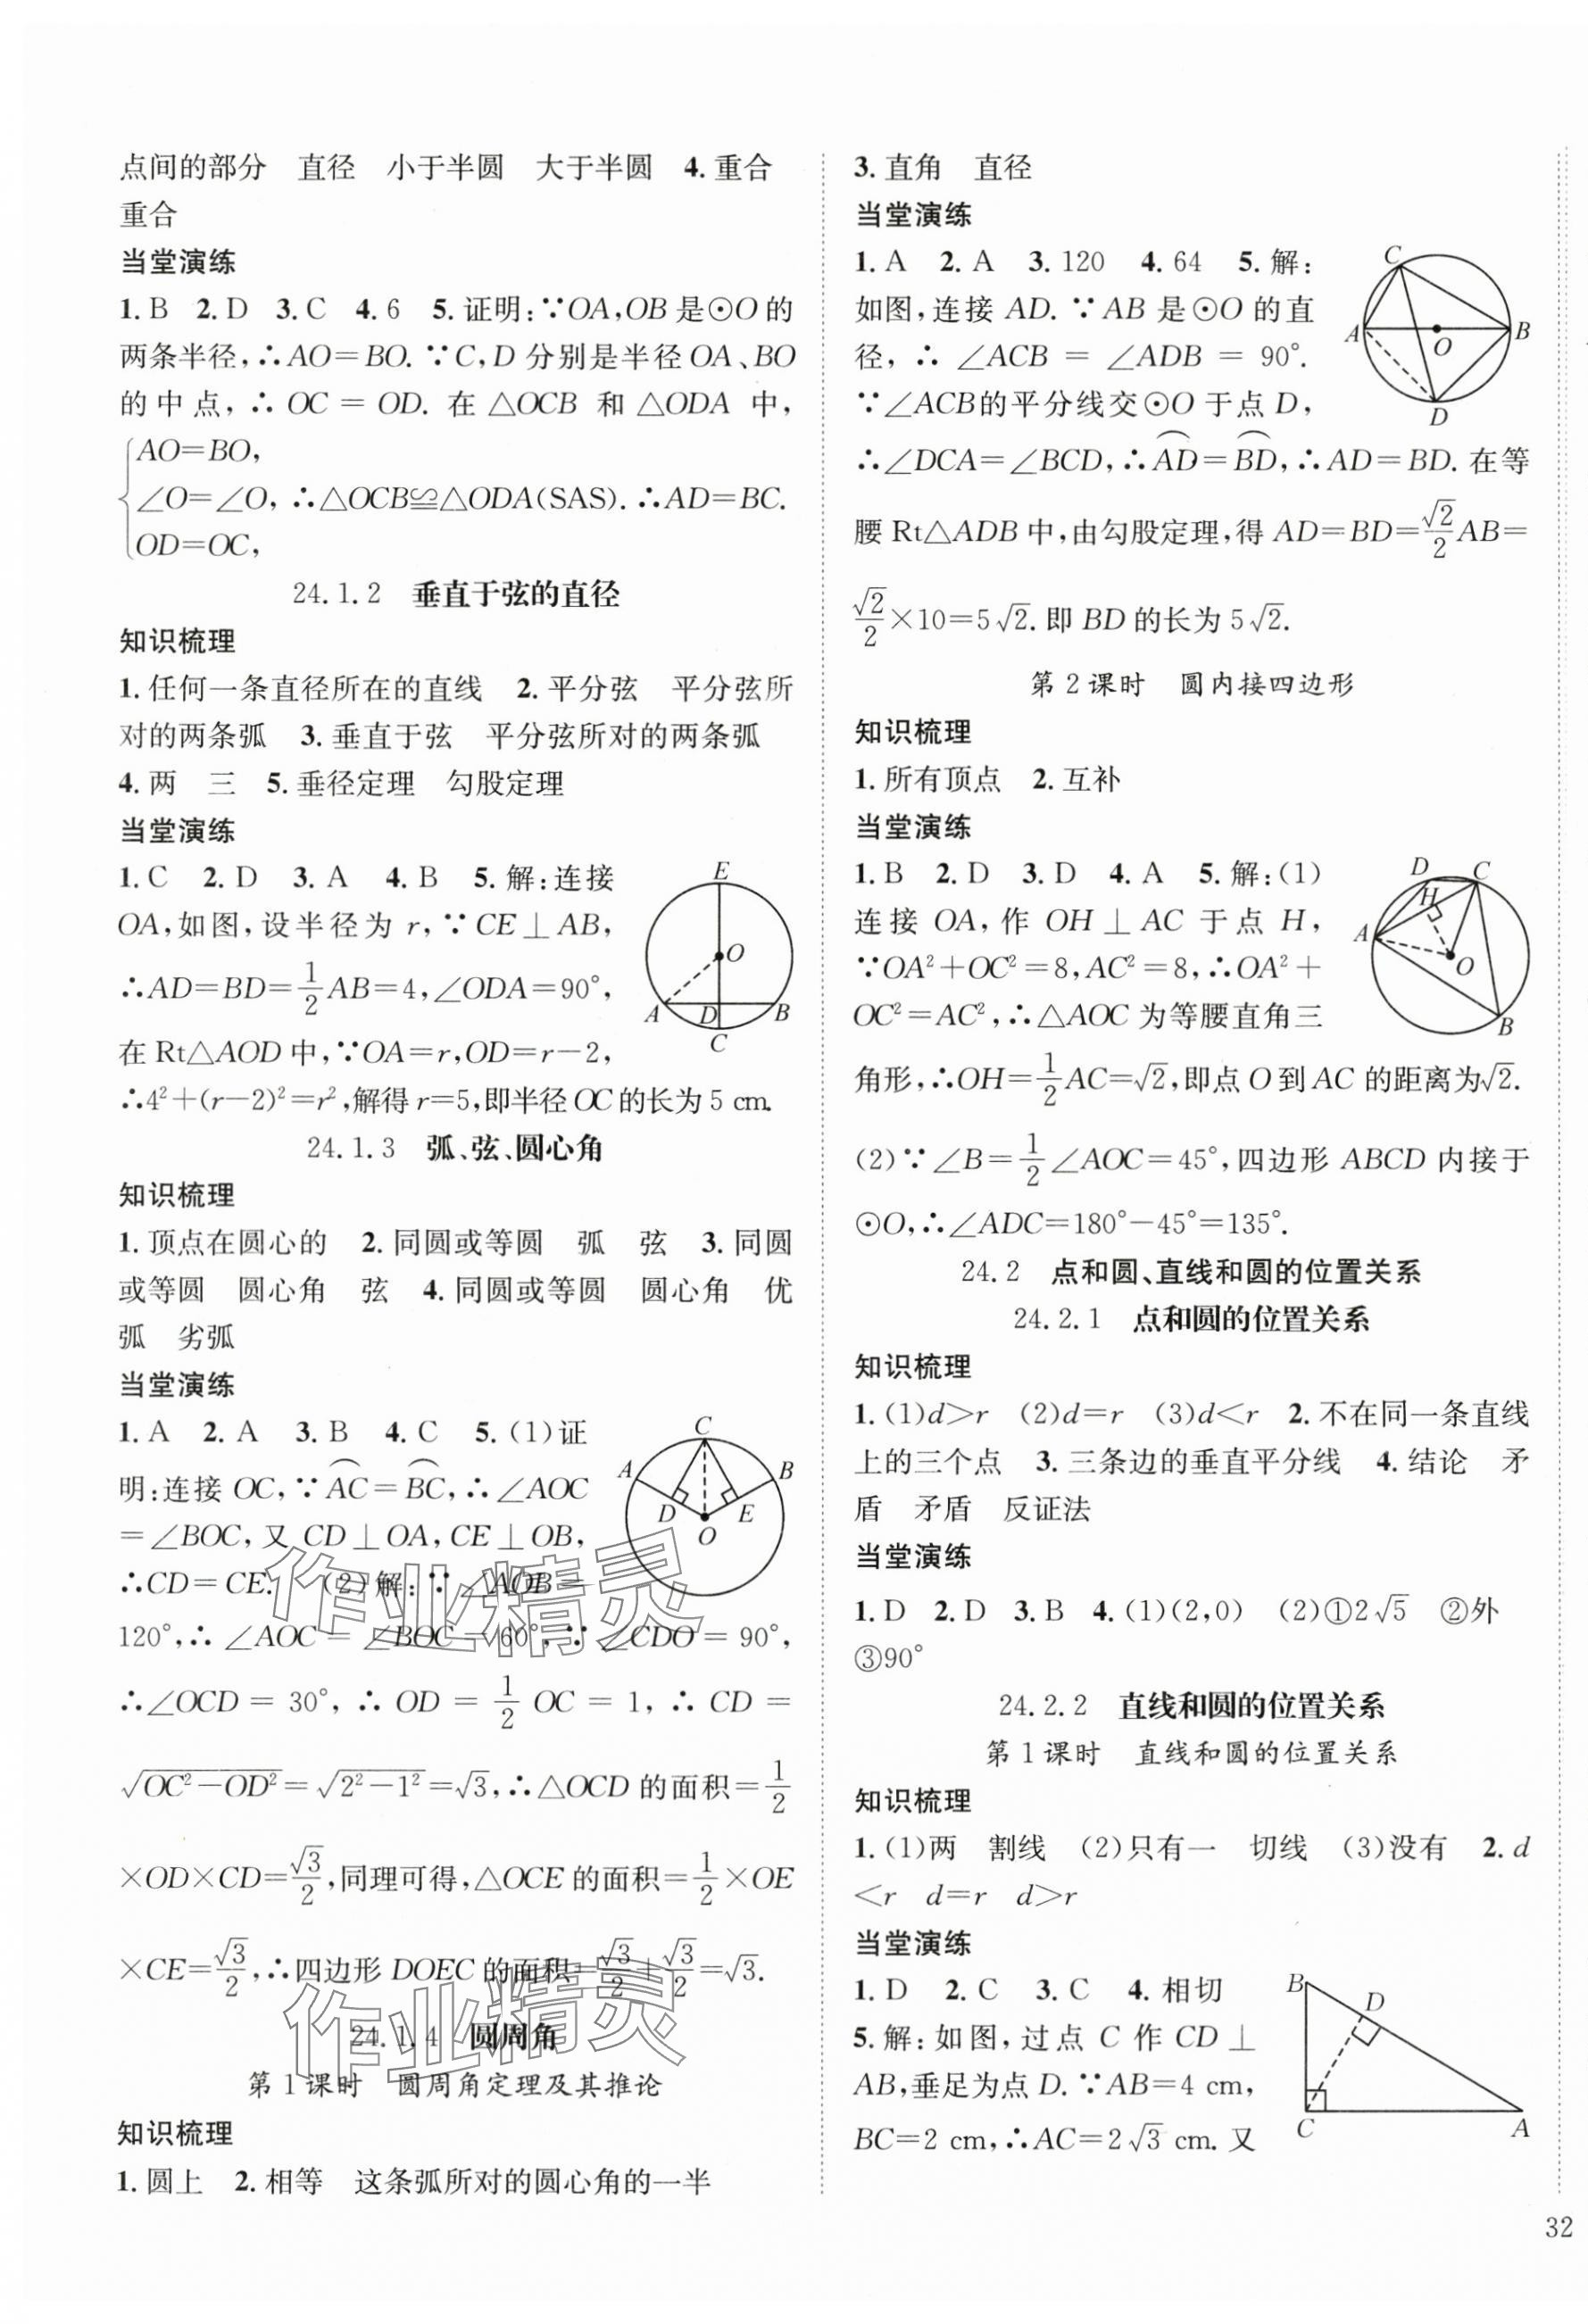 点间的部分　直径　小于半圆　大于半圆　4. 重合
重合
当堂演练
1. B　2. D　3. C　4. 6　5. 证明：∵OA，OB是⊙O的
两条半径，∴AO＝BO. ∵C，D分别是半径OA、BO
的中点，∴OC＝OD. 在△OCB和△ODA中，
AO＝BO，
∠O＝∠O，∴△OCB≌△ODA(SAS). ∴AD＝BC.
OD＝OC，
24.1.2　垂直于弦的直径
知识梳理
1. 任何一条直径所在的直线　2. 平分弦　平分弦所
对的两条弧　3. 垂直于弦　平分弦所对的两条弧
4. 两　三　5. 垂径定理　勾股定理
当堂演练
1. C　2. D　3. A　4. B　5. 解：连接
OA，如图，设半径为r，∵CE⊥AB，
∴AD＝BD＝1/2AB＝4，∠ODA＝90°，
在Rt△AOD中，∵OA＝r，OD＝r－2，
∴4²＋(r－2)²＝r²，解得r＝5，即半径OC的长为5 cm.
E
O
A D B
C
24.1.3　弧、弦、圆心角
知识梳理
1. 顶点在圆心的　2. 同圆或等圆　弧　弦　3. 同圆
或等圆　圆心角　弦　4. 同圆或等圆　圆心角　优
弧　劣弧
当堂演练
1. A　2. A　3. B　4. C　5. (1)证
明：连接OC，∵⌒AC＝⌒BC，∴∠AOC
＝∠BOC，又CD⊥OA，CE⊥OB，
∴CD＝CE.　(2)解：∵∠AOB＝
120°，∴∠AOC＝∠BOC＝60°，∵∠CDO＝90°，
∴∠OCD＝30°，∴OD＝1/2 OC＝1，∴CD＝
√(OC²－OD²)＝√(2²－1²)＝√3，∴△OCD的面积＝1/2
×OD×CD＝√3/2，同理可得，△OCE的面积＝1/2×OE
×CE＝√3/2，∴四边形DOEC的面积＝√3/2＋√3/2＝√3.
C
A B
D E
O
作业精灵
作业精灵
24.1.4　圆周角
第1课时　圆周角定理及其推论
知识梳理
1. 圆上　2. 相等　这条弧所对的圆心角的一半
3. 直角　直径
当堂演练
1. A　2. A　3. 120　4. 64　5. 解：
如图，连接AD. ∵AB是⊙O的直
径，∴∠ACB＝∠ADB＝90°.
∵∠ACB的平分线交⊙O于点D，
∴∠DCA＝∠BCD，∴⌒AD＝⌒BD，∴AD＝BD. 在等
腰Rt△ADB中，由勾股定理，得AD＝BD＝√2/2AB＝
√2/2×10＝5√2. 即BD的长为5√2.
C
A O B
D
第2课时　圆内接四边形
知识梳理
1. 所有顶点　2. 互补
当堂演练
1. B　2. D　3. D　4. A　5. 解：(1)
连接OA，作OH⊥AC于点H，
∵OA²＋OC²＝8，AC²＝8，∴OA²＋
OC²＝AC²，∴△AOC为等腰直角三
角形，∴OH＝1/2AC＝√2，即点O到AC的距离为√2.
(2)∵∠B＝1/2∠AOC＝45°，四边形ABCD内接于
⊙O，∴∠ADC＝180°－45°＝135°.
D C
H
A
O
B
24.2　点和圆、直线和圆的位置关系
24.2.1　点和圆的位置关系
知识梳理
1. (1)d＞r　(2)d＝r　(3)d＜r　2. 不在同一条直线
上的三个点　3. 三条边的垂直平分线　4. 结论　矛
盾　矛盾　反证法
当堂演练
1. D　2. D　3. B　4. (1)(2,0)　(2)①2√5　②外
③90°
24.2.2　直线和圆的位置关系
第1课时　直线和圆的位置关系
知识梳理
1. (1)两　割线　(2)只有一　切线　(3)没有　2. d
＜r　d＝r　d＞r
当堂演练
1. D　2. C　3. C　4. 相切
5. 解：如图，过点C作CD⊥
AB，垂足为点D. ∵AB＝4 cm，
BC＝2 cm，∴AC＝2√3 cm. 又
B
D
C A
32